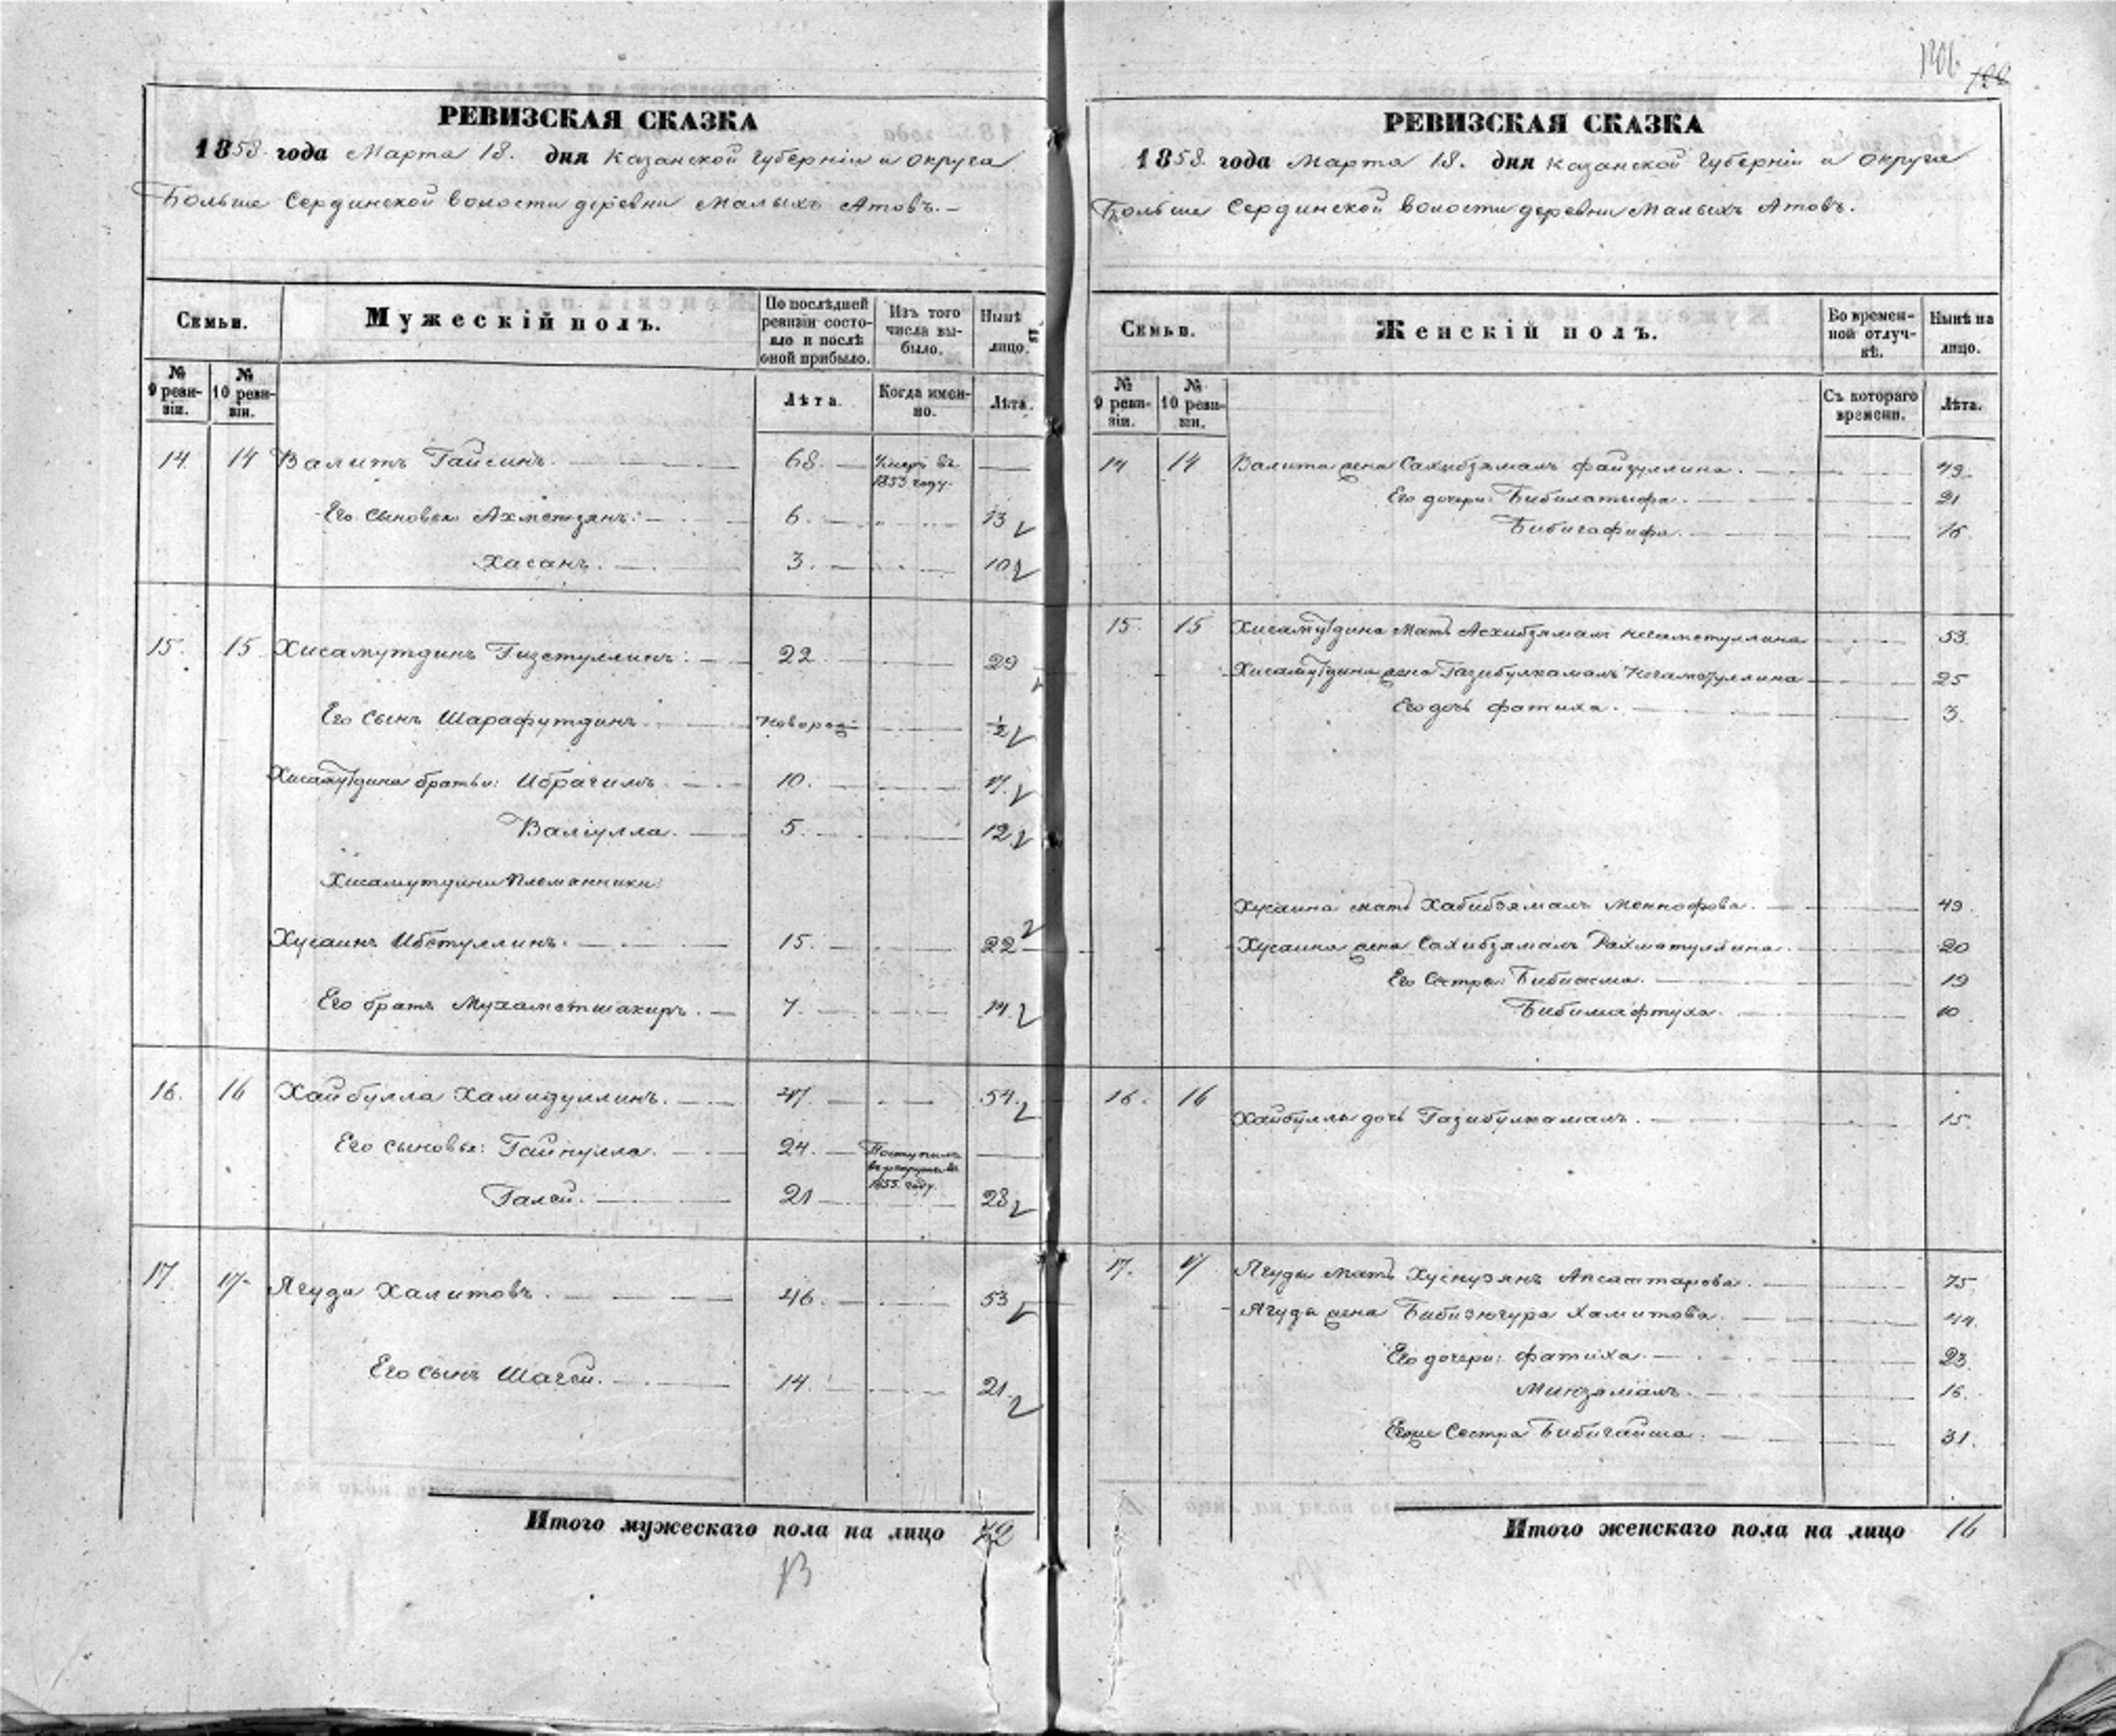 РЕВИЗСКАЯ СКАЗКА
1858 года Марта 18. дня Казанской Губерніи и округа
Больше Сердинской волости деревни Малыхъ Атовъ.
Семьи. Мужескій полъ. По послѣдней ревизіи состояло и послѣ оной прибыло. Изъ того числа выбыло. Нынѣ на лицо.
№ 9 ревизіи. № 10 ревизіи. Лѣта Когда именно. Лѣта.
14. 14 Валитъ Гайсинъ. 68. Умеръ въ 1853 году.
Его сыновья Ахметзянъ: 6. 13
Хасанъ. 3. 10
15. 15 Хисамутдинъ Гизетуллинъ: 22 29
Его сынъ Шарафутдинъ новорож ½
Хисамутдина братья: Ибрагимъ 10. 17.
Валіулла. 5. 12
Хисамутдина племянники:
Хусаинъ Ибетуллинъ. 15. 22
Его братъ Мухаметшакиръ. 7. 14
16. 16 Хайбулла Хамидуллинъ. 47. 54.
Его сыновья: Гайнулла. 24. Поступилъ въ рекруты въ 1855. году.
Галей. 21 28
17 17 Ягуда Халитовъ. 46. 53
Его сынъ Шагей. 14. 21.
Итого мужескаго пола на лицо 12
13
106. 122
РЕВИЗСКАЯ СКАЗКА
1858. года Марта 18. дня Казанской Губерніи и округа
Больше Сердинской волости деревни Малыхъ Атовъ.
Семьи. Женскій полъ. Во временной отлучкѣ. Нынѣ на лицо.
№ 9 ревизіи. № 10 ревизіи. Съ котораго времени. Лѣта.
14 14 Валита жена Сахибзямалъ Файзуллина. 49.
Его дочери: Бибилатыфа. 21
Бибигафифа. 16
15. 15 Хисамутдина мать Асхибзямалъ Негаметуллина 53.
Хисамутдина жена Газибулкамалъ Негаметуллина 25
Его дочь Фатиха. 3.
Хусаина мать Хабибзямалъ Меннофова. 49.
Хусаина жена Сахибзямалъ Рахматуллина. 20
Его сестры: Бибиасма. 19
Бибимафтуха. 10
16. 16 Хайбуллы дочь Газибулкамалъ. 15.
17. 17 Ягуды мать Хуснузянъ Апсаттарова. 75
Ягуды жена Бибизюгура Хамитова. 44.
Его дочери: Фатиха. 23.
Минзямалъ. 16.
Его же Сестра Бибигайша. 31.
Итого женскаго пола на лицо 16